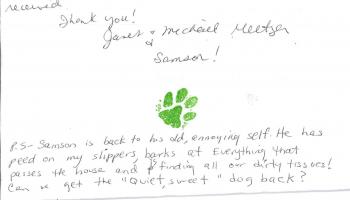 received
Thank you!
Janet & Michael Meltzer
&
Samson!
P.S- Samson is back to his old, ennoying self. He has
peed on my slippers, barks at Everything that
passes the house and finding all our dirty tissues!
Can we get the "Quiet, sweet" dog back?